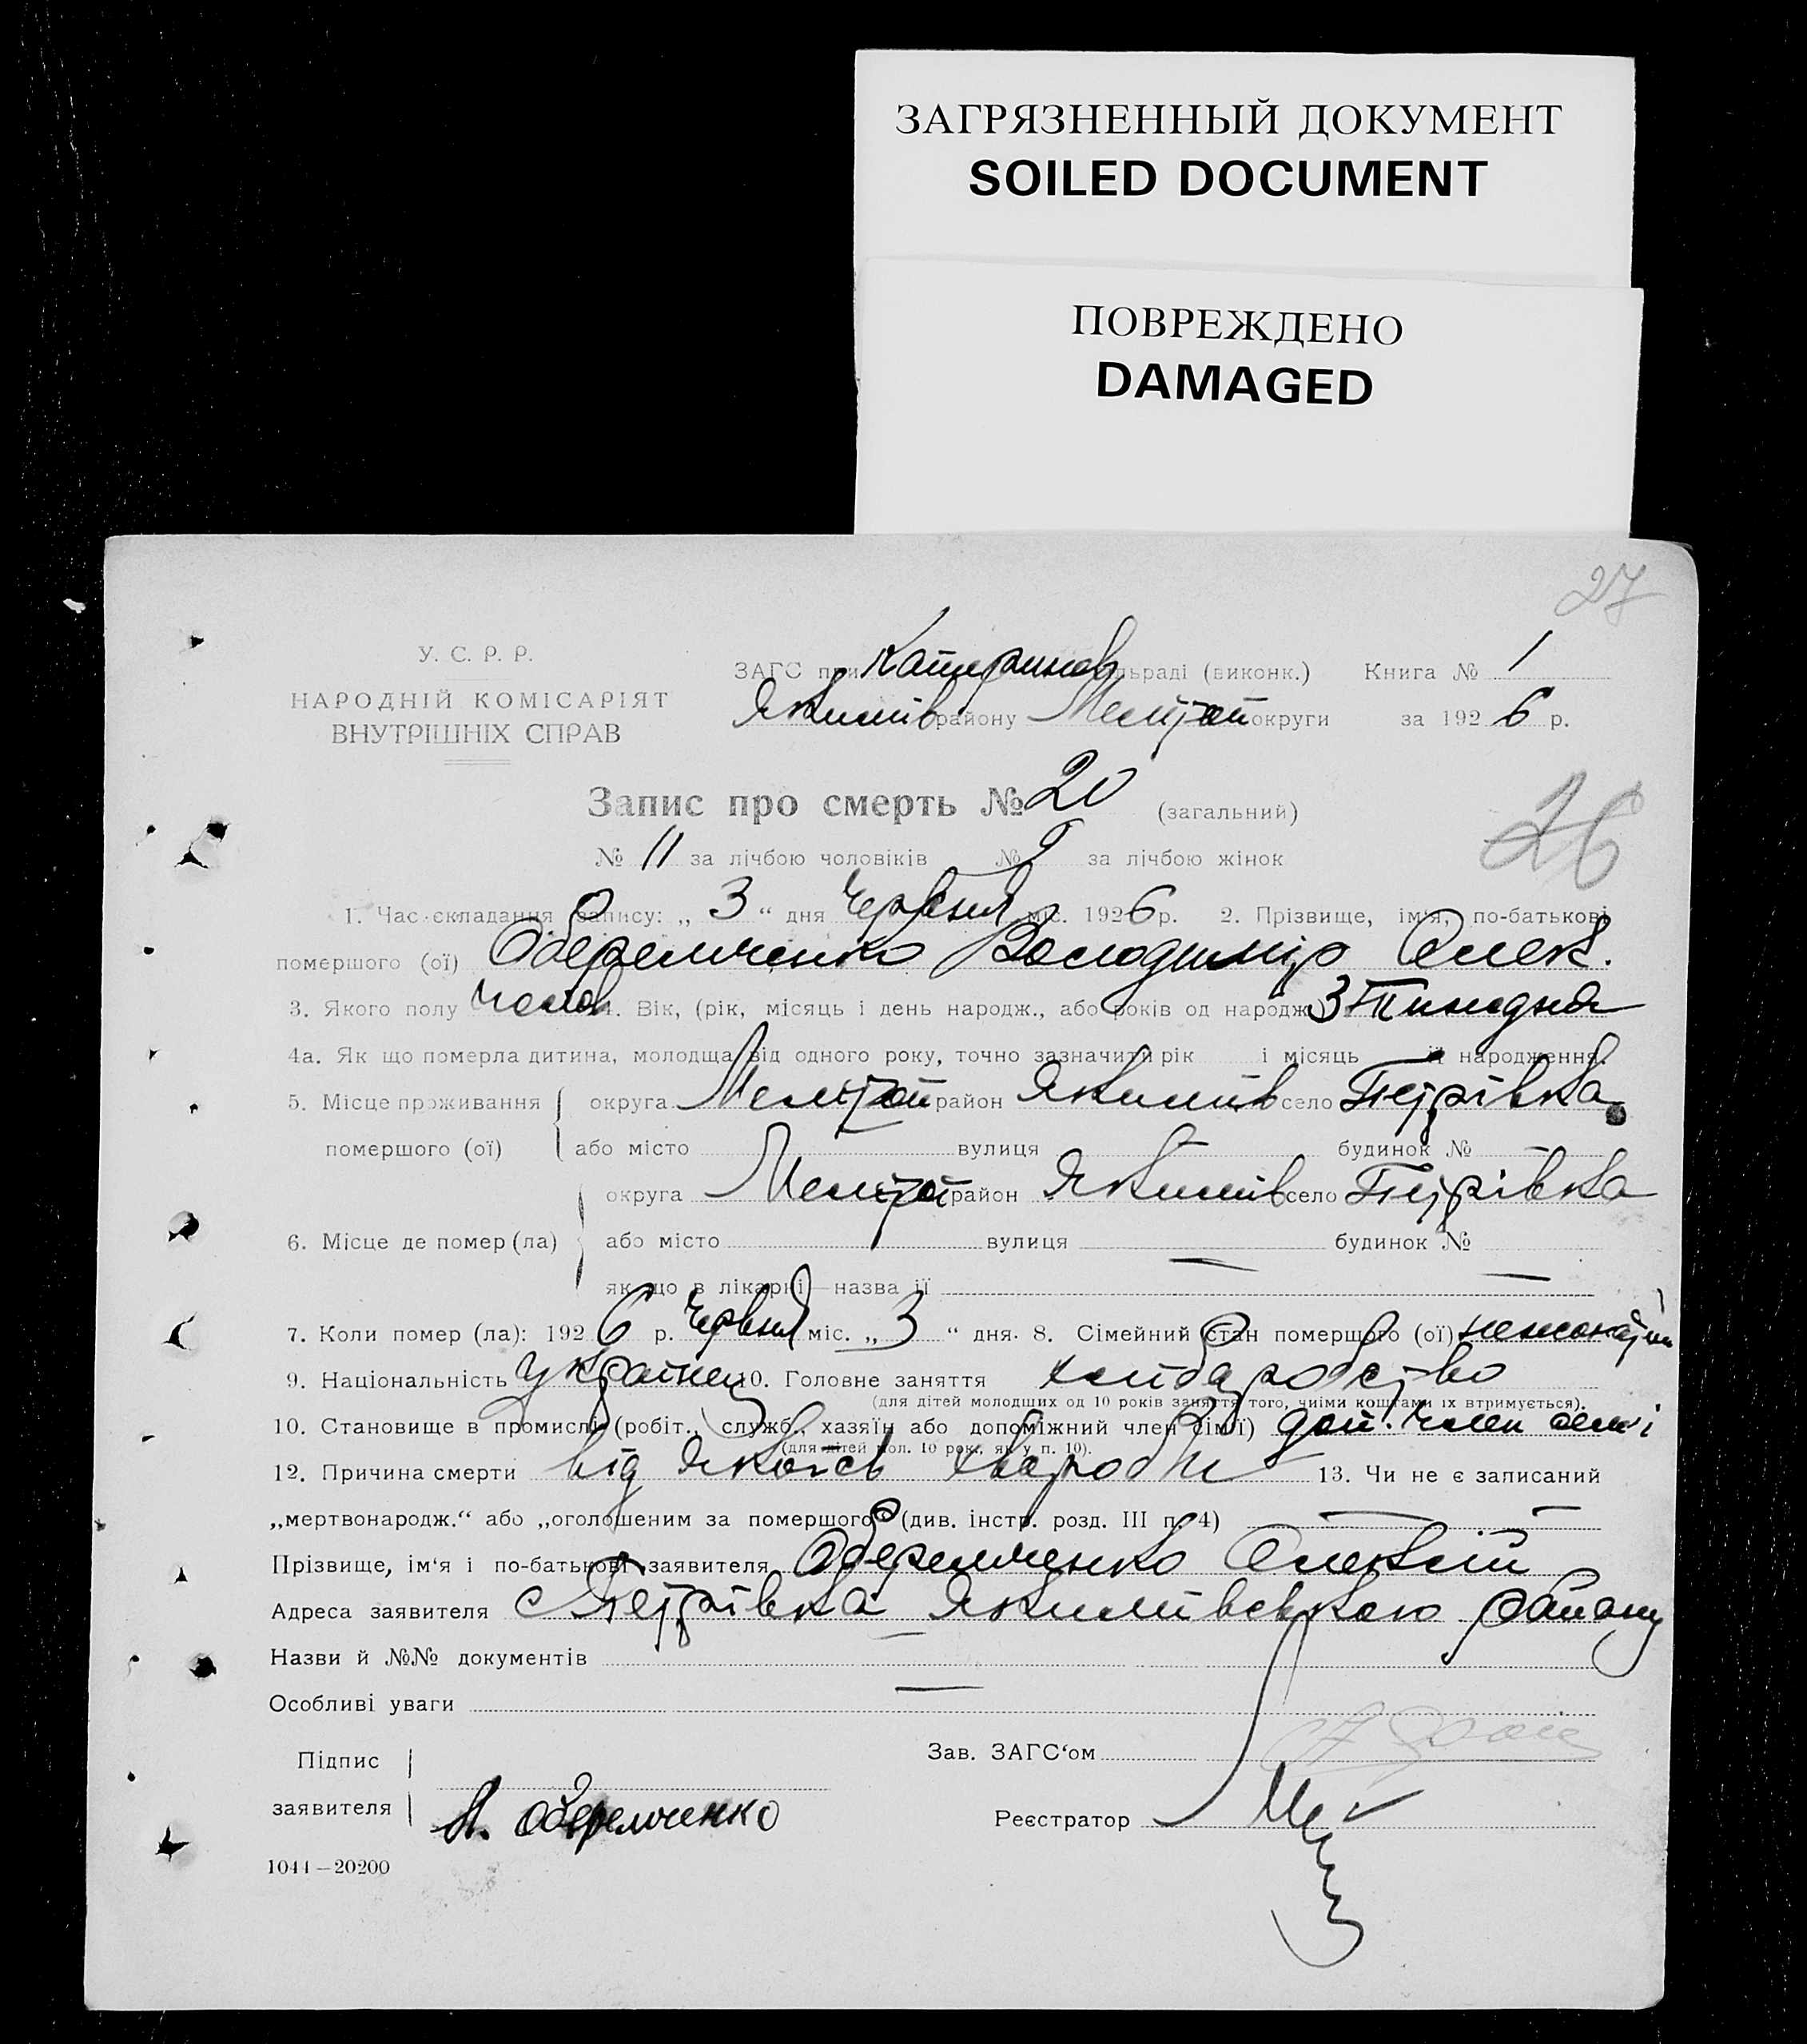 ЗАГРЯЗНЕННЫЙ ДОКУМЕНТ
SOILED DOCUMENT
ПОВРЕЖДЕНО
DAMAGED
27
У. С. Р. Р.
НАРОДНІЙ КОМІСАРІЯТ
ВНУТРІШНІХ СПРАВ
ЗАГС при Катеринов сільраді (виконк.) Книга № 1
Якимів району Мелітоп округи за 1926 р.
Запис про смерть № 20 (загальний)
26
№ 11 за лічбою чоловіків № 9 за лічбою жінок
1. Час складання запису: „ 3 “ дня Червня міс. 1926 р. 2. Прізвище, ім'я, по-батькові
помершого (ої) Оберемченко Володимір Олек.
3. Якого полу Чолов 4. Вік, (рік, місяць і день народж., або років од народж.) 3 тижодня
4а. Як що померла дитина, молодща від одного року, точно зазначити рік і місяць її народження.
5. Місце проживання округа Мелітоп район Якимів село Петрівка
помершого (ої) або місто вулиця — будинок № —
округа Мелітоп район Якимів село Петрівка
6. Місце де помер (ла) або місто вулиця — будинок № —
як що в лікарні—назва її
7. Коли помер (ла): 1926 р. Червня міс. „ 3 “ дня. 8. Сімейний стан помершого (ої) нежонатий
9. Національність українец 10. Головне заняття хлібаробство
(для дітей молодших од 10 років заняття того, чиїми коштами їх втримується).
10. Становище в промислі (робіт., служб., хазяїн або допоміжний член сім'ї) доп. член сем'і
(для дітей мол. 10 рок., як у п. 10).
12. Причина смерти від якоїсь хвороби 13. Чи не є записаний
„мертвонародж.“ або „оголошеним за помершого“ (див. інстр. розд. III п. 4) — —
Прізвище, ім'я і по-батькові заявителя Оберемченко Олексій
Адреса заявителя с Петрівка Якимівського району
Назви й №№ документів
Особливі уваги —
Підпис
заявителя А. Оберемченко
Зав. ЗАГС'ом
Реєстратор
1044—20200